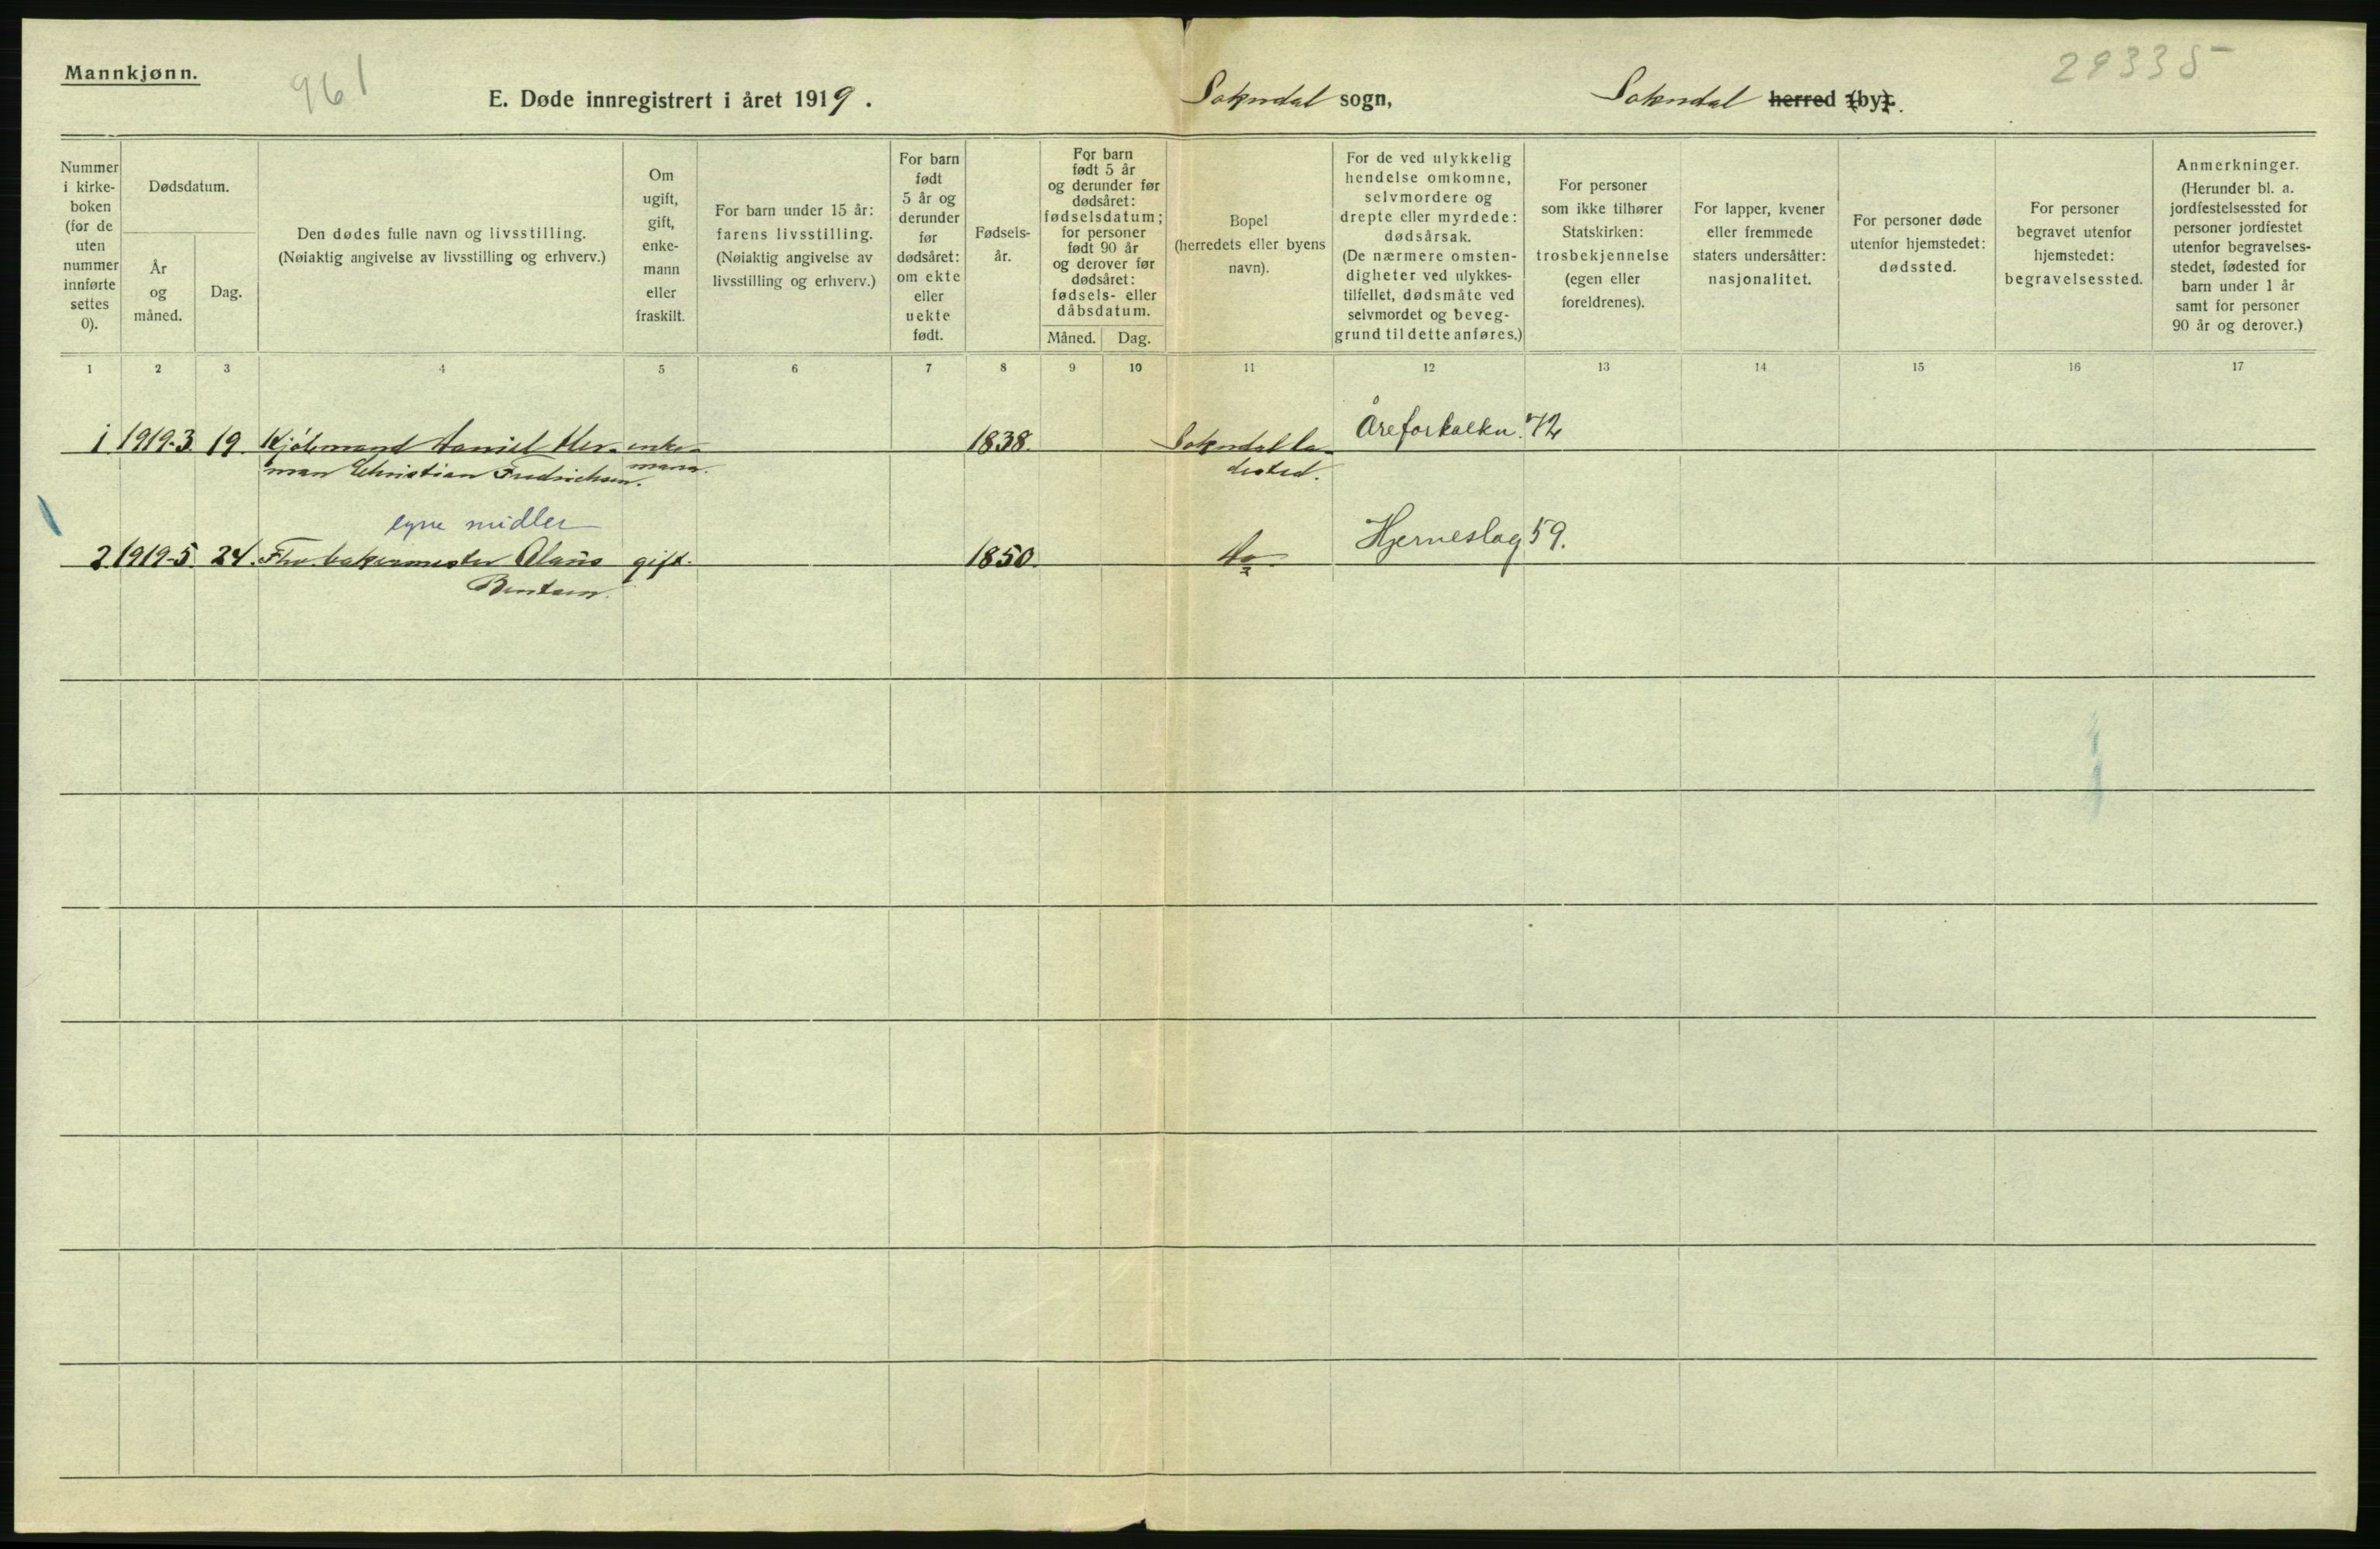 Mannkjønn.
961
29335
E. Døde innregistrert i året 1919.
Sokndal sogn,
Sokndal herred (by).
Nummer
i kirke-
boken
(for de
uten
nummer
innførte
settes
0).
Dødsdatum.
År
og
måned.
Dag.
Den dødes fulle navn og livsstilling.
(Nøiaktig angivelse av livsstilling og erhverv.)
Om
ugift,
gift,
enke-
mann
eller
fraskilt.
For barn under 15 år:
farens livsstilling.
(Nøiaktig angivelse av
livsstilling og erhverv.)
For barn
født
5 år og
derunder
før
dødsåret:
om ekte
eller
uekte
født.
Fødsels-
år.
For barn
født 5 år
og derunder før
dødsåret:
fødselsdatum;
for personer
født 90 år
og derover før
dødsåret:
fødsels- eller
dåbsdatum.
Måned.
Dag.
Bopel
(herredets eller byens
navn).
For de ved ulykkelig
hendelse omkomne,
selvmordere og
drepte eller myrdede:
dødsårsak.
(De nærmere omsten-
digheter ved ulykkes-
tilfellet, dødsmåte ved
selvmordet og beveg-
grund til dette anføres.)
For personer
som ikke tilhører
Statskirken:
trosbekjennelse
(egen eller
foreldrenes).
For lapper, kvener
eller fremmede
staters undersåtter:
nasjonalitet.
For personer døde
utenfor hjemstedet:
dødssted.
For personer
begravet utenfor
hjemstedet:
begravelsessted.
Anmerkninger.
(Herunder bl. a.
jordfestelsessted for
personer jordfestet
utenfor begravelses-
stedet, fødested for
barn under 1 år
samt for personer
90 år og derover.)
1 2 3 4 5 6 7 8 9 10 11 12 13 14 15 16 17
1 1919-3. 19. Kjøbmand Daniel Her- enke- 1838. Sokndal la- Åreforkalkn. 72
man Christian Fredrichsen. mann. dested.
egne midler
2. 1919-5. 24. Fhv. bakermester Olaus gift. 1850. Do Hjerneslag 59.
Bentsen.